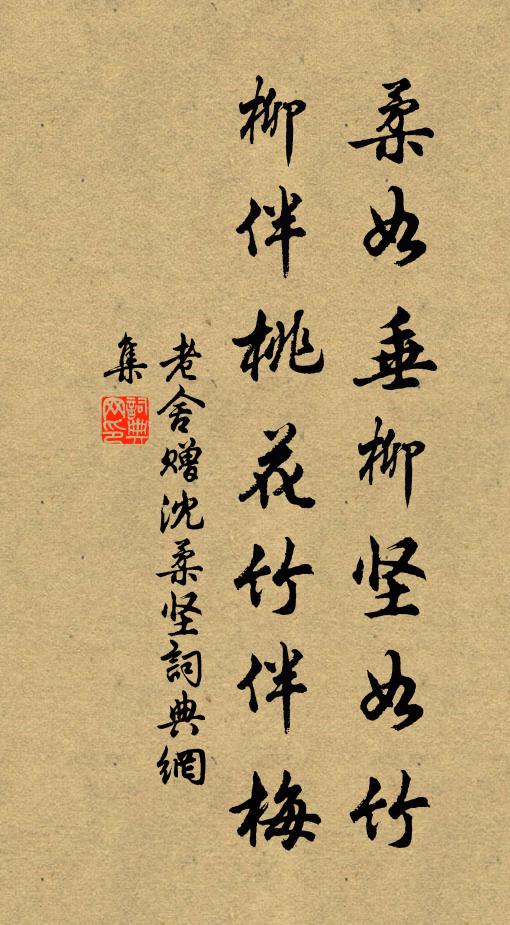 柔如垂柳坚如竹
柳伴桃花竹伴梅
老舍赠沈柔坚詞典網
集
詞典网印